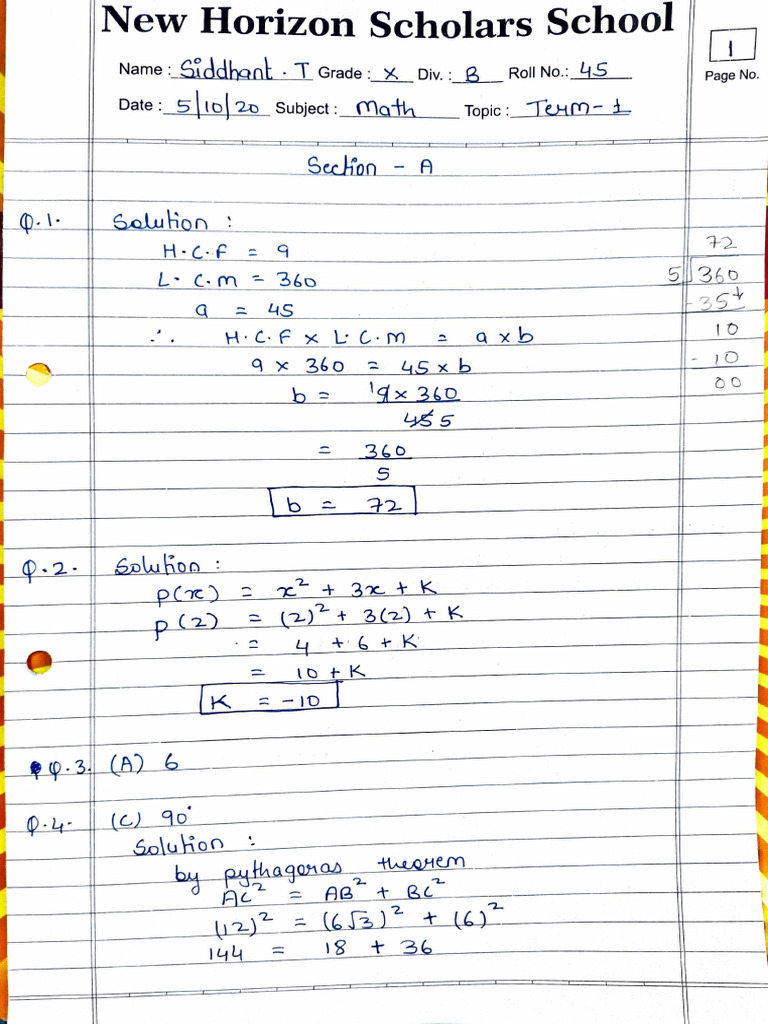 New Horizon Scholars School
1
Name : Siddhant . T Grade : X Div. : B Roll No.: 45
Page No.
Date : 5/10/20 Subject : Math Topic : Term-1
Section - A
Q.1. Solution :
H.C.F = 9
L.C.M = 360
a = 45
∴ H.C.F x L.C.M = a x b
9 x 360 = 45 x b
b = 1 9 x 360
45 5
= 360
5
b = 72
72
5 360
- 35↓
10
- 10
00
Q.2. Solution :
p(x) = x² + 3x + K
p(2) = (2)² + 3(2) + K
= 4 + 6 + K
= 10 + K
K = -10
Q.3. (A) 6
Q.4. (C) 90°
Solution :
by pythagoras theorem
AC² = AB² + BC²
(12)² = (6√3)² + (6)²
144 = 18 + 36